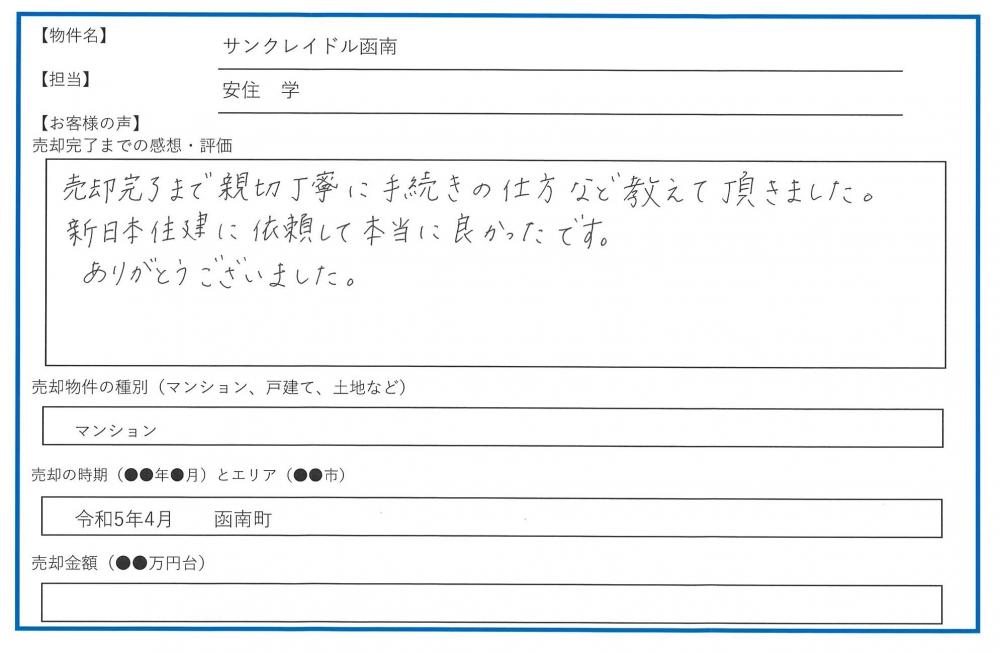 【物件名】
サンクレイドル函南
【担当】
安住 学
【お客様の声】
売却完了までの感想・評価
売却完了まで親切丁寧に手続きの仕方など教えて頂きました。
新日本住建に依頼して本当に良かったです。
ありがとうございました。
売却物件の種別（マンション、戸建て、土地など）
マンション
売却の時期（●●年●月）とエリア（●●市）
令和5年4月 函南町
売却金額（●●万円台）